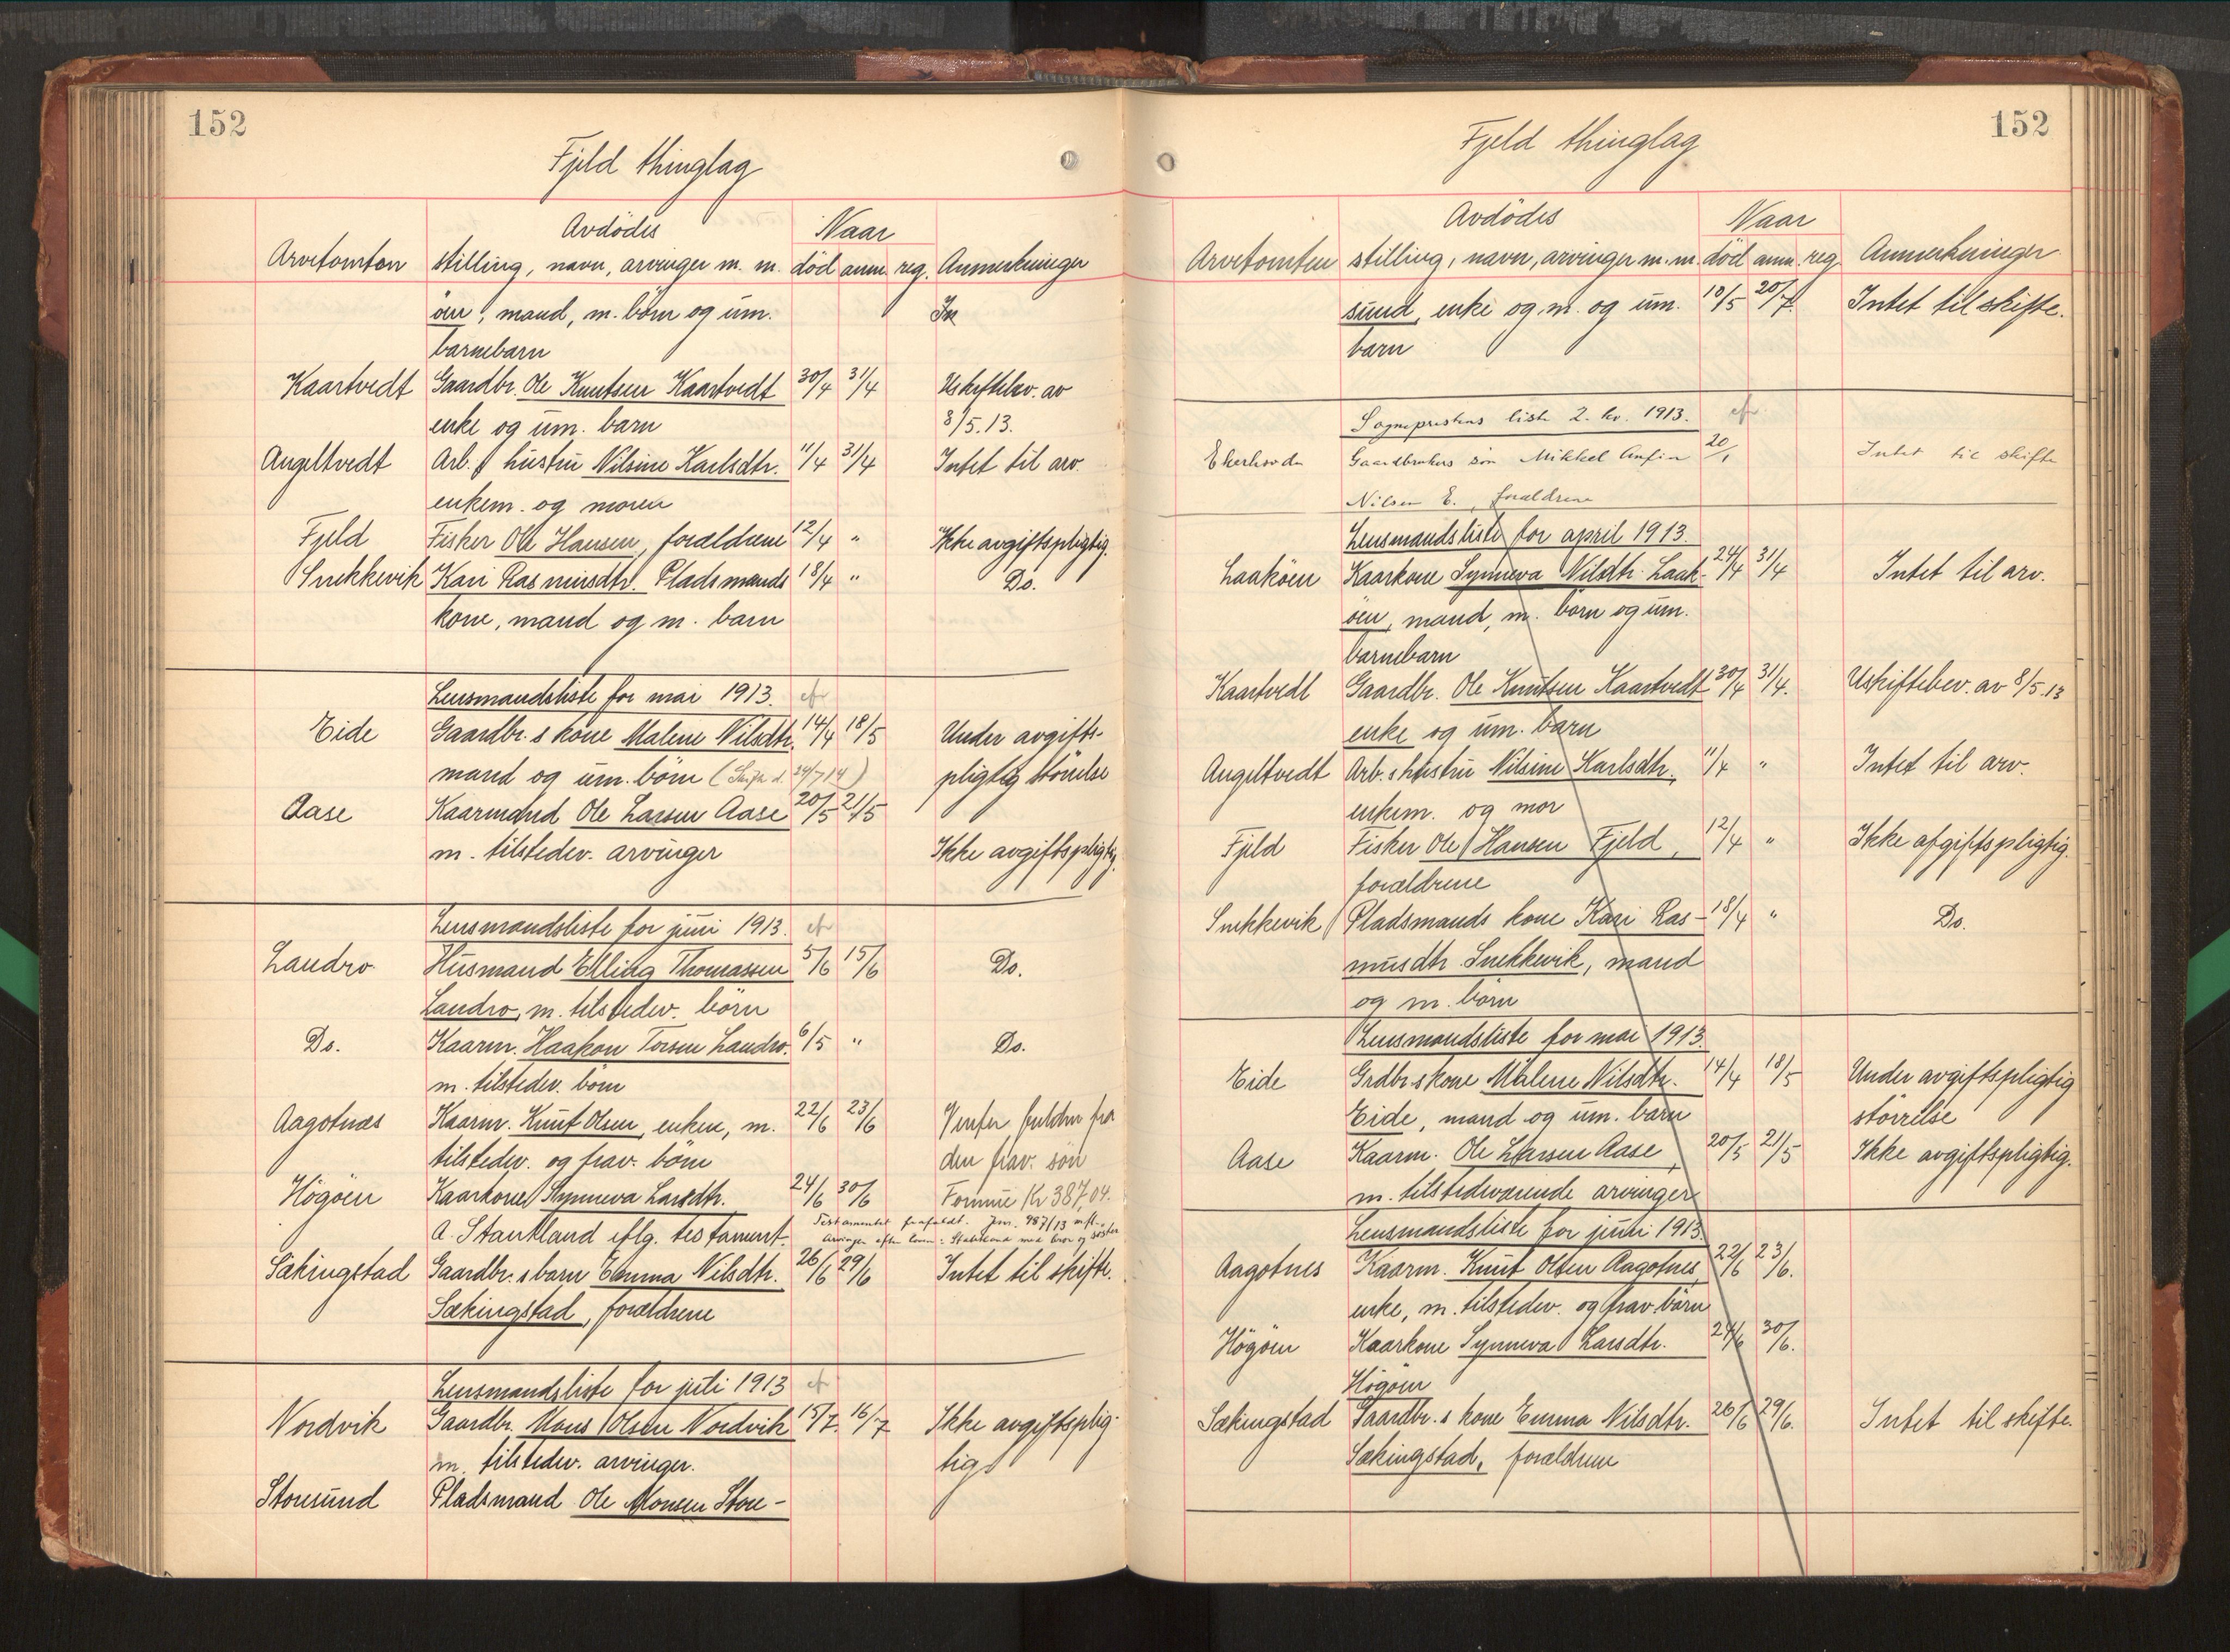 152
Fjeld thinglag
Avdödes Naar
Arvetomten stilling, navn, arvinger m. m. död anm. reg. Anmerkninger
öen, mand, m. börn og um. In
barnebarn
Kaartvedt Gaardbr. Ole Knutsen Kaartvedt 30/4 31/4 Uskiftebev. av
enke og um. barn 8/5.13.
Angeltvedt Arb. s hustru Nilsine Karlsdtr. 11/4 31/4 Intet til arv.
enkem. og moren
Fjeld Fisker Ole Hansen, forældrene 12/4 " Ikke avgiftspligtig.
Snekkevik Kari Rasmusdtr. Pladsmands 18/4 " Do.
kone, mand og m. barn
Lensmandsliste for mai 1913. efr
Eide Gaardbr. s kone Malene Nilsdtr. 14/4 18/5 Under avgifts-
mand og um. börn (Skifte d. 24/7 14) pligtig störrelse
Aase Kaarmand Ole Larsen Aase 20/5 21/5
m. tilstedev. arvinger Ikke avgiftspligtig.
Lensmandsliste for juni 1913. efr
Landro Husmand Elling Thomassen 5/6 15/6 Do.
Landro, m. tilstedev. börn
Do. Kaarm. Haakon Torsen Landro. 6/5 " Do.
m. tilstedev. börn
Aagotnæs Kaarm. Knut Olsen, enken, m. 22/6 23/6 fra
tilstedev. og frav. börn den frav. sön
Högöen Kaarkone Synneva Larsdtr. 24/6 30/6 Formue Kr 387,04.
A. Stautland iflg. testament. Testamentet frafaldt. Jm. 987/13
Arvinger efter loven: med bror og söster
Sækingstad Gaardbr. s barn Emma Nilsdtr. 26/6 29/6 Intet til skifte.
Sækingstad, forældrene
Lensmandsliste for juli 1913 efr
Nordvik Gaardbr. Mons Olsen Nordvik 15/7. 16/7 Ikke avgiftsplig-
m. tilstedev. arvinger. tig
Storesund Pladsmand Ole Monsen Store-
152
Fjeld thinglag
Avdödes Naar
Arvetomten stilling, navn, arvinger m. m. död anm. reg Anmerkninger
sund, enke og m. og um. 10/5 20/7. Intet til skifte.
barn
Sogneprestens liste 2. kv. 1913. efr.
Ekerhovda Gaardbrukers sön Mikkel Anfin 20/1 Intet til skifte
Nilsen E., forældrene
Lensmandsliste for april 1913.
Laaköen Kaarkone Synneva Nilsdtr. Laak- 24/4 31/4 Intet til arv.
öen, mand, m. börn og um.
barnebarn
Kaartvedt Gaardbr. Ole Knutsen Kaartvedt 30/4 31/4. Uskiftebev. av 8/5.13
enke og um. barn
Angeltvedt Arb. s hustru Nilsine Karlsdtr. 11/4 " Intet til arv.
enkem. og mor
Fjeld Fisker Ole Hansen Fjeld, 12/4 " Ikke afgiftspligtig.
forældrene
Snekkevik Pladsmands kone Kari Ras- 18/4 " Do.
musdtr. Snekkevik, mand
og m. börn
Lensmandsliste for mai 1913.
Eide Grdbr. s kone Malene Nilsdtr. 14/4 18/5 Under avgiftspligtig
Eide, mand og um. barn störrelse
Aase Kaarm. Ole Larsen Aase, 20/5 21/5 Ikke avgiftspligtig.
m. tilstedeværende arvinger
Lensmandsliste for juni 1913.
Aagotnes Kaarm. Knut Olsen Aagotnes, 22/6 23/6.
enke, m. tilstedev. og frav. börn
Högöen Kaarkone Synneva Larsdtr. 24/6 30/6.
Högöen
Sækingstad Gaardbr. s kone Emma Nilsdtr. 26/6 29/6. Intet til skifte.
Sækingstad, forældrene